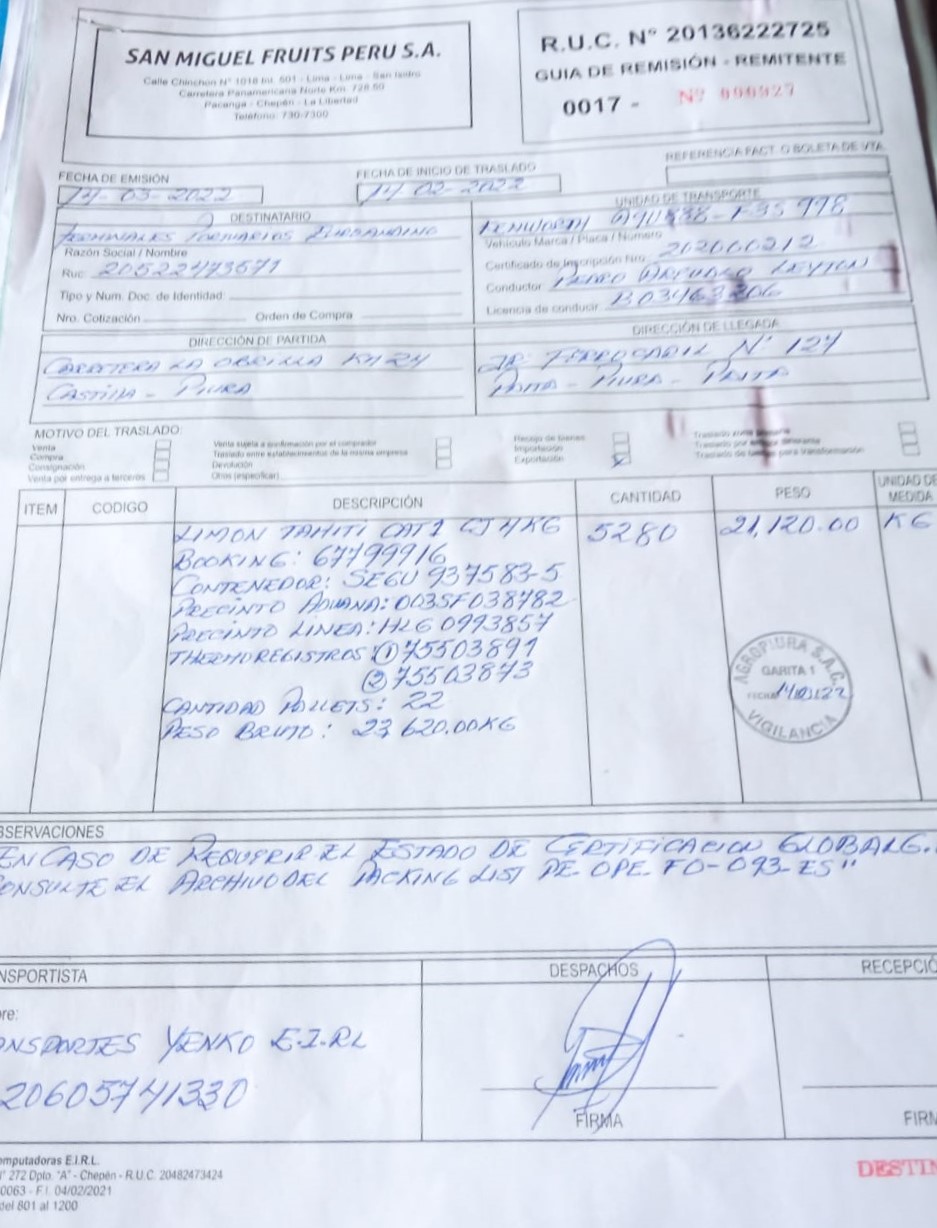 SAN MIGUEL FRUITS PERU S.A.
Calle Chinchon N° 1018 Int. 601 - Lima - Lima - San Isidro
Carretera Panamericana Norte Km. 728.50
Pacanga - Chepén - La Libertad
Teléfono: 730-7300
R.U.C. N° 20136222725
GUIA DE REMISIÓN - REMITENTE
0017 - Nº
REFERENCIA FACT. O BOLETA DE VTA.
FECHA DE EMISIÓN
14-03-2022
FECHA DE INICIO DE TRASLADO
14 03-2022
DESTINATARIO
TERMINALES PORTUARIOS EUROANDINO
Razón Social / Nombre
Ruc: 20522473571
Tipo y Num. Doc. de Identidad:
Nro. Cotización Orden de Compra
UNIDAD DE TRANSPORTE
KENWORTH
Vehículo Marca / Placa / Número
Certificado de Inscripción Nro.
Conductor PEDRO LEYTON
Licencia de conducir
DIRECCIÓN DE PARTIDA
CARRETERA LA OBRILLA KM 24
CASTILLA - PIURA
DIRECCIÓN DE LLEGADA
JR FERROCARIL N° 127
PAITA - PIURA - PAITA
MOTIVO DEL TRASLADO:
Venta
Compra
Consignación
Venta por entrega a terceros
Venta sujeta a confirmación por el comprador
Traslado entre establecimientos de la misma empresa
Devolución
Otros (especificar)
Recojo de bienes
Importación
Exportación
ITEM CODIGO DESCRIPCIÓN CANTIDAD PESO UNIDAD DE MEDIDA
LIMON TAHITI CAT1 CJ 4KG 5280 21,120.00 KG
BOOKING: 67799916
CONTENEDOR: SEGU 937583-5
PRECINTO ADUANA: 003SF038782
PRECINTO LINEA: HLG 0993857
THERMOREGISTROS: ① 75503891
② 75503873
CANTIDAD PALLETS: 22
PESO BRUTO: 23 620.00KG
AGROPIURA S.A.C.
GARITA 1
VIGILANCIA
BSERVACIONES
EN CASO DE REQUERIR EL ESTADO DE CERTIFICACION GLOBALG.
ONSULTE EL ARCHIVO DEL PACKING LIST DE OPE FO-093-ES"
NSPORTISTA
DESPACHOS
RECEPCIÓ
re:
ANSPORTES YENKO E.I.RL
20605741330
FIRMA
FIRM
omputadoras E.I.R.L.
° 272 Dpto. "A" - Chepén - R.U.C. 20482473424
0063 - F.I. 04/02/2021
del 801 al 1200
DESTIN